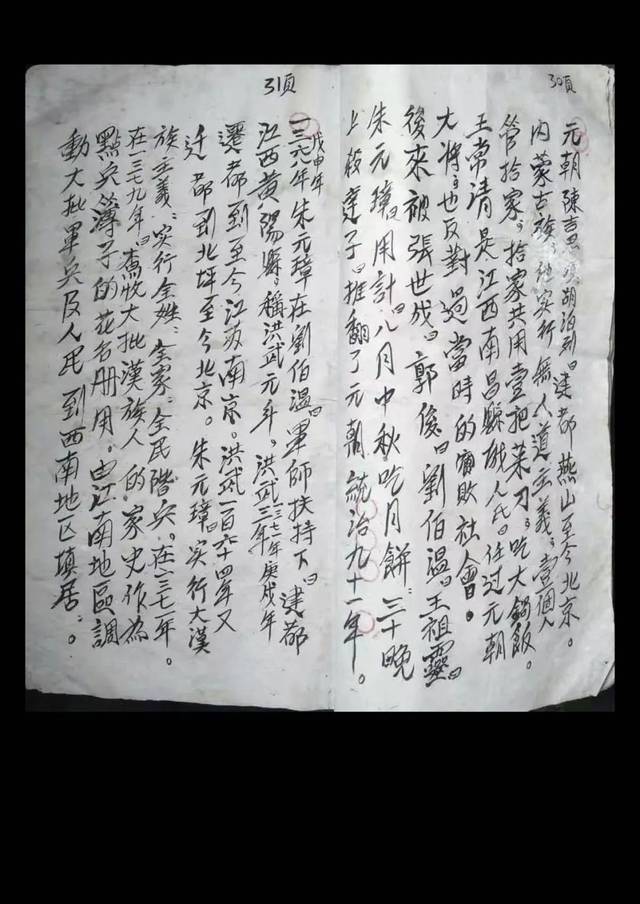 30頁
元朝陳吉思 胡泊列，建都燕山至今北京。
内蒙古族，他实行無人道主義，壹個人
管拾家，拾家共用壹把菜刀，吃大鍋飯。
王常清是江西南昌縣城人氏，任过元朝
大将，也反對過當時的腐敗社會。
後來被張世成，郭俊，劉伯温，王祖靈，
朱元璋，用計，八月中秋吃月餅，三十晚
上殺逹子，推翻了元朝統治九十一年。
31頁
戊申年
一三六八年朱元璋在劉伯温，軍師扶持下，建都
江西黄陽縣，稱洪武元年。洪武三年
一三七一年庚戌年
遷都到至今江苏南京。洪武一百六十四年又
迁都到北坪至今北京。朱元璋，实行大漢
族主義，实行全姓，全家，全民階兵。在一三七一年。
在一三七九年，查收大批漢族人的家史作為
點兵薄子的花名册用。由江南地區調
動大批軍兵及人民到西南地区填居。